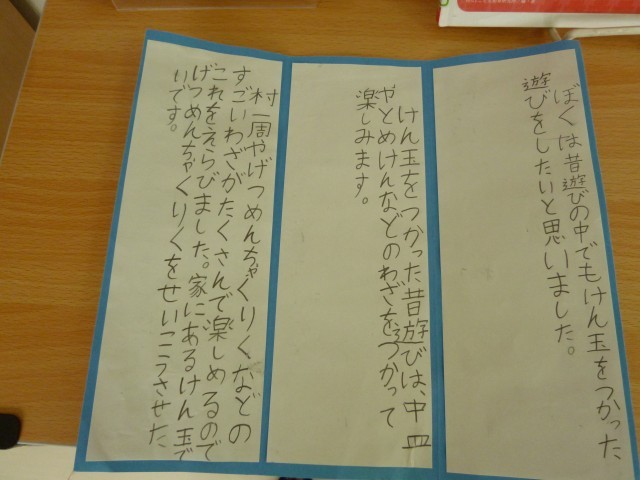 ぼくは昔遊びの中でもけん玉をつかった
遊びをしたいと思いました。
けん玉をつかった昔遊びは、中皿
やとめけんなどのわざをつかって
楽しみます。
村一周やげつめんちゃくりくなどの
すごいわざがたくさんで楽しめるので
これをえらびました。家にあるけん玉で
げつめんちゃくりくをせいこうさせた
いです。